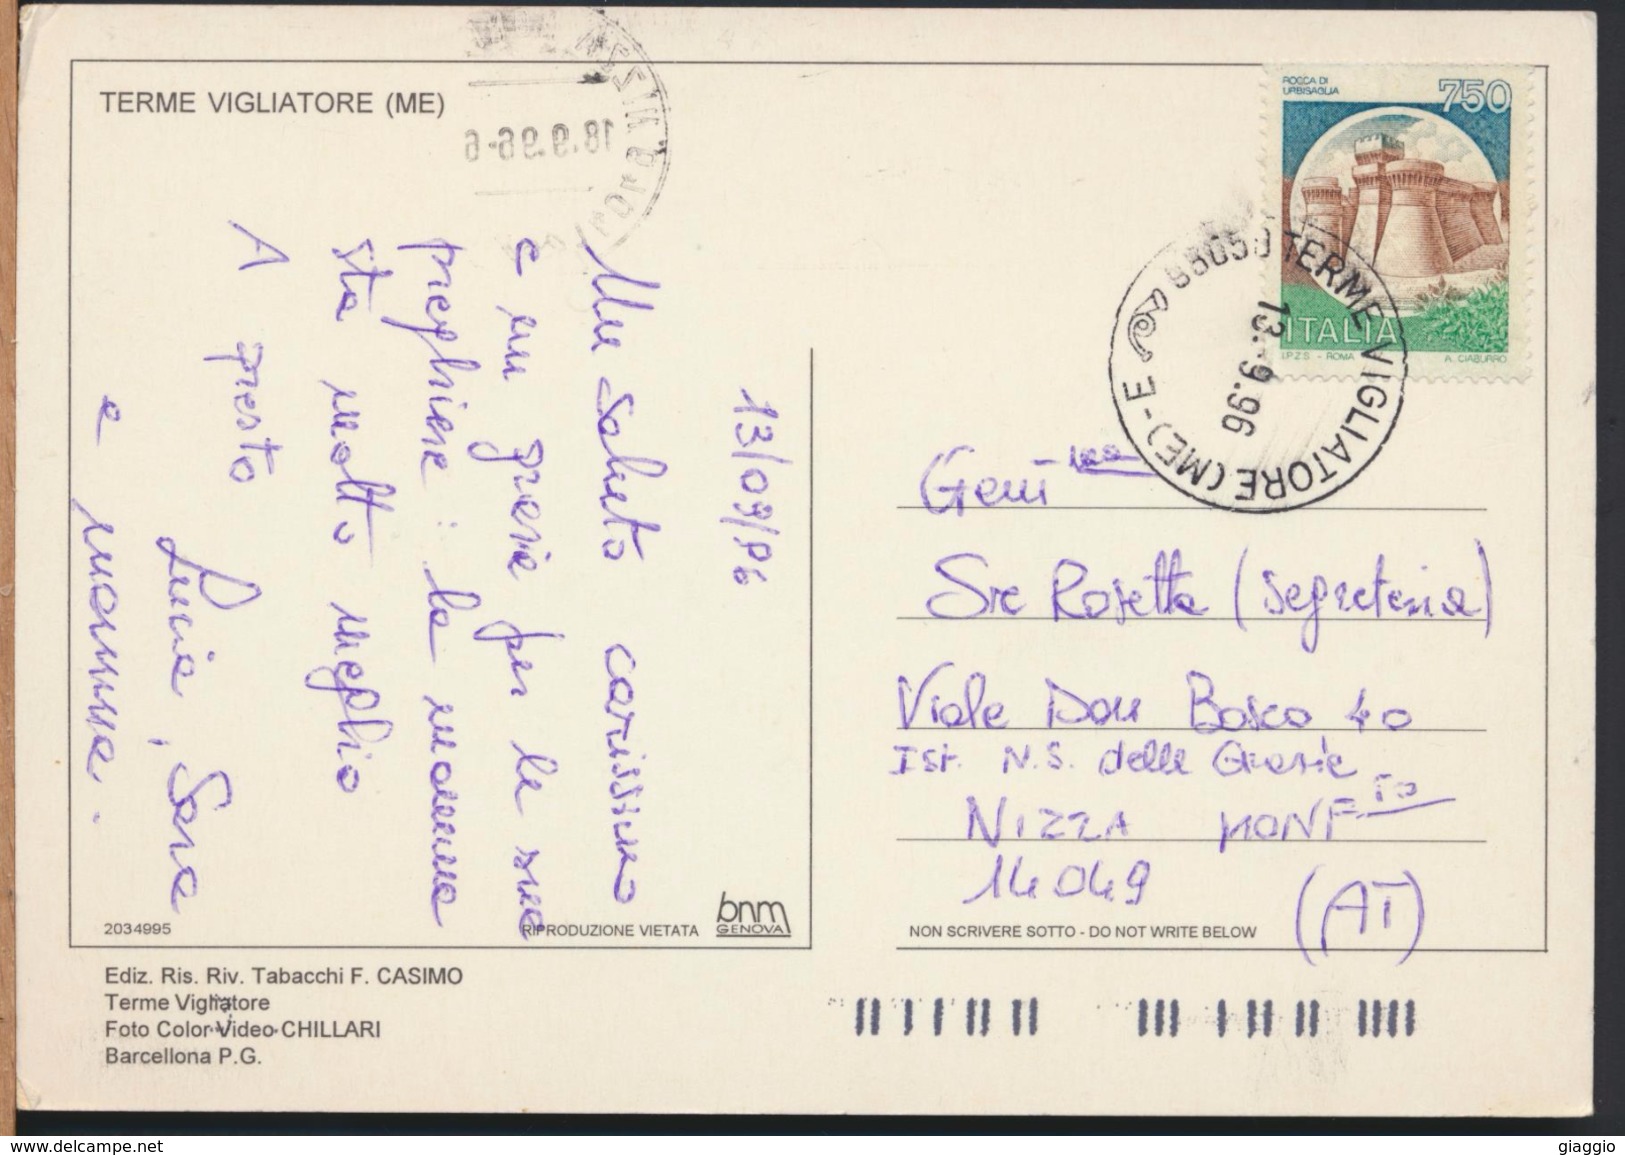 TERME VIGLIATORE (ME)
18.9.96-6
ROCCA DI
URBISAGLIA
750
ITALIA
I.P.Z.S. - ROMA
A. CIABURRO
98050 TERME VIGLIATORE (ME) - E
13.-9.96
13/09/96
Un saluto carissimo
e un grazie per le sue
preghiere: la mamma
sta molto meglio
A presto
Lucia, Sara
e mamma.
Gent.ma
Sre Rosetta (segreteria)
Viale Don Bosco 40
Ist. N.S. delle Grazie
NIZZA MONF.TO
14049 (AT)
2034995
RIPRODUZIONE VIETATA
bnm
GENOVA
NON SCRIVERE SOTTO - DO NOT WRITE BELOW
Ediz. Ris. Riv. Tabacchi F. CASIMO
Terme Vigliatore
Foto Color Video CHILLARI
Barcellona P.G.
www.delcampe.net
giaggio